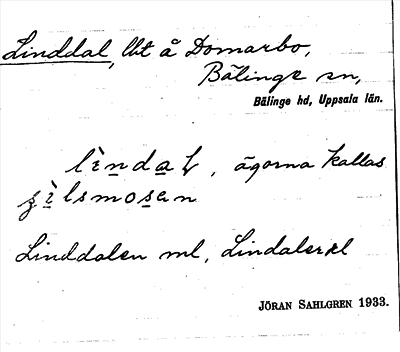 Linddal, lht å Domarbo,
Bälinge sn,
Bälinge hd, Uppsala län.
ägorna kallas
Linddalen ml, Lindalen
JÖRAN SAHLGREN 1933.